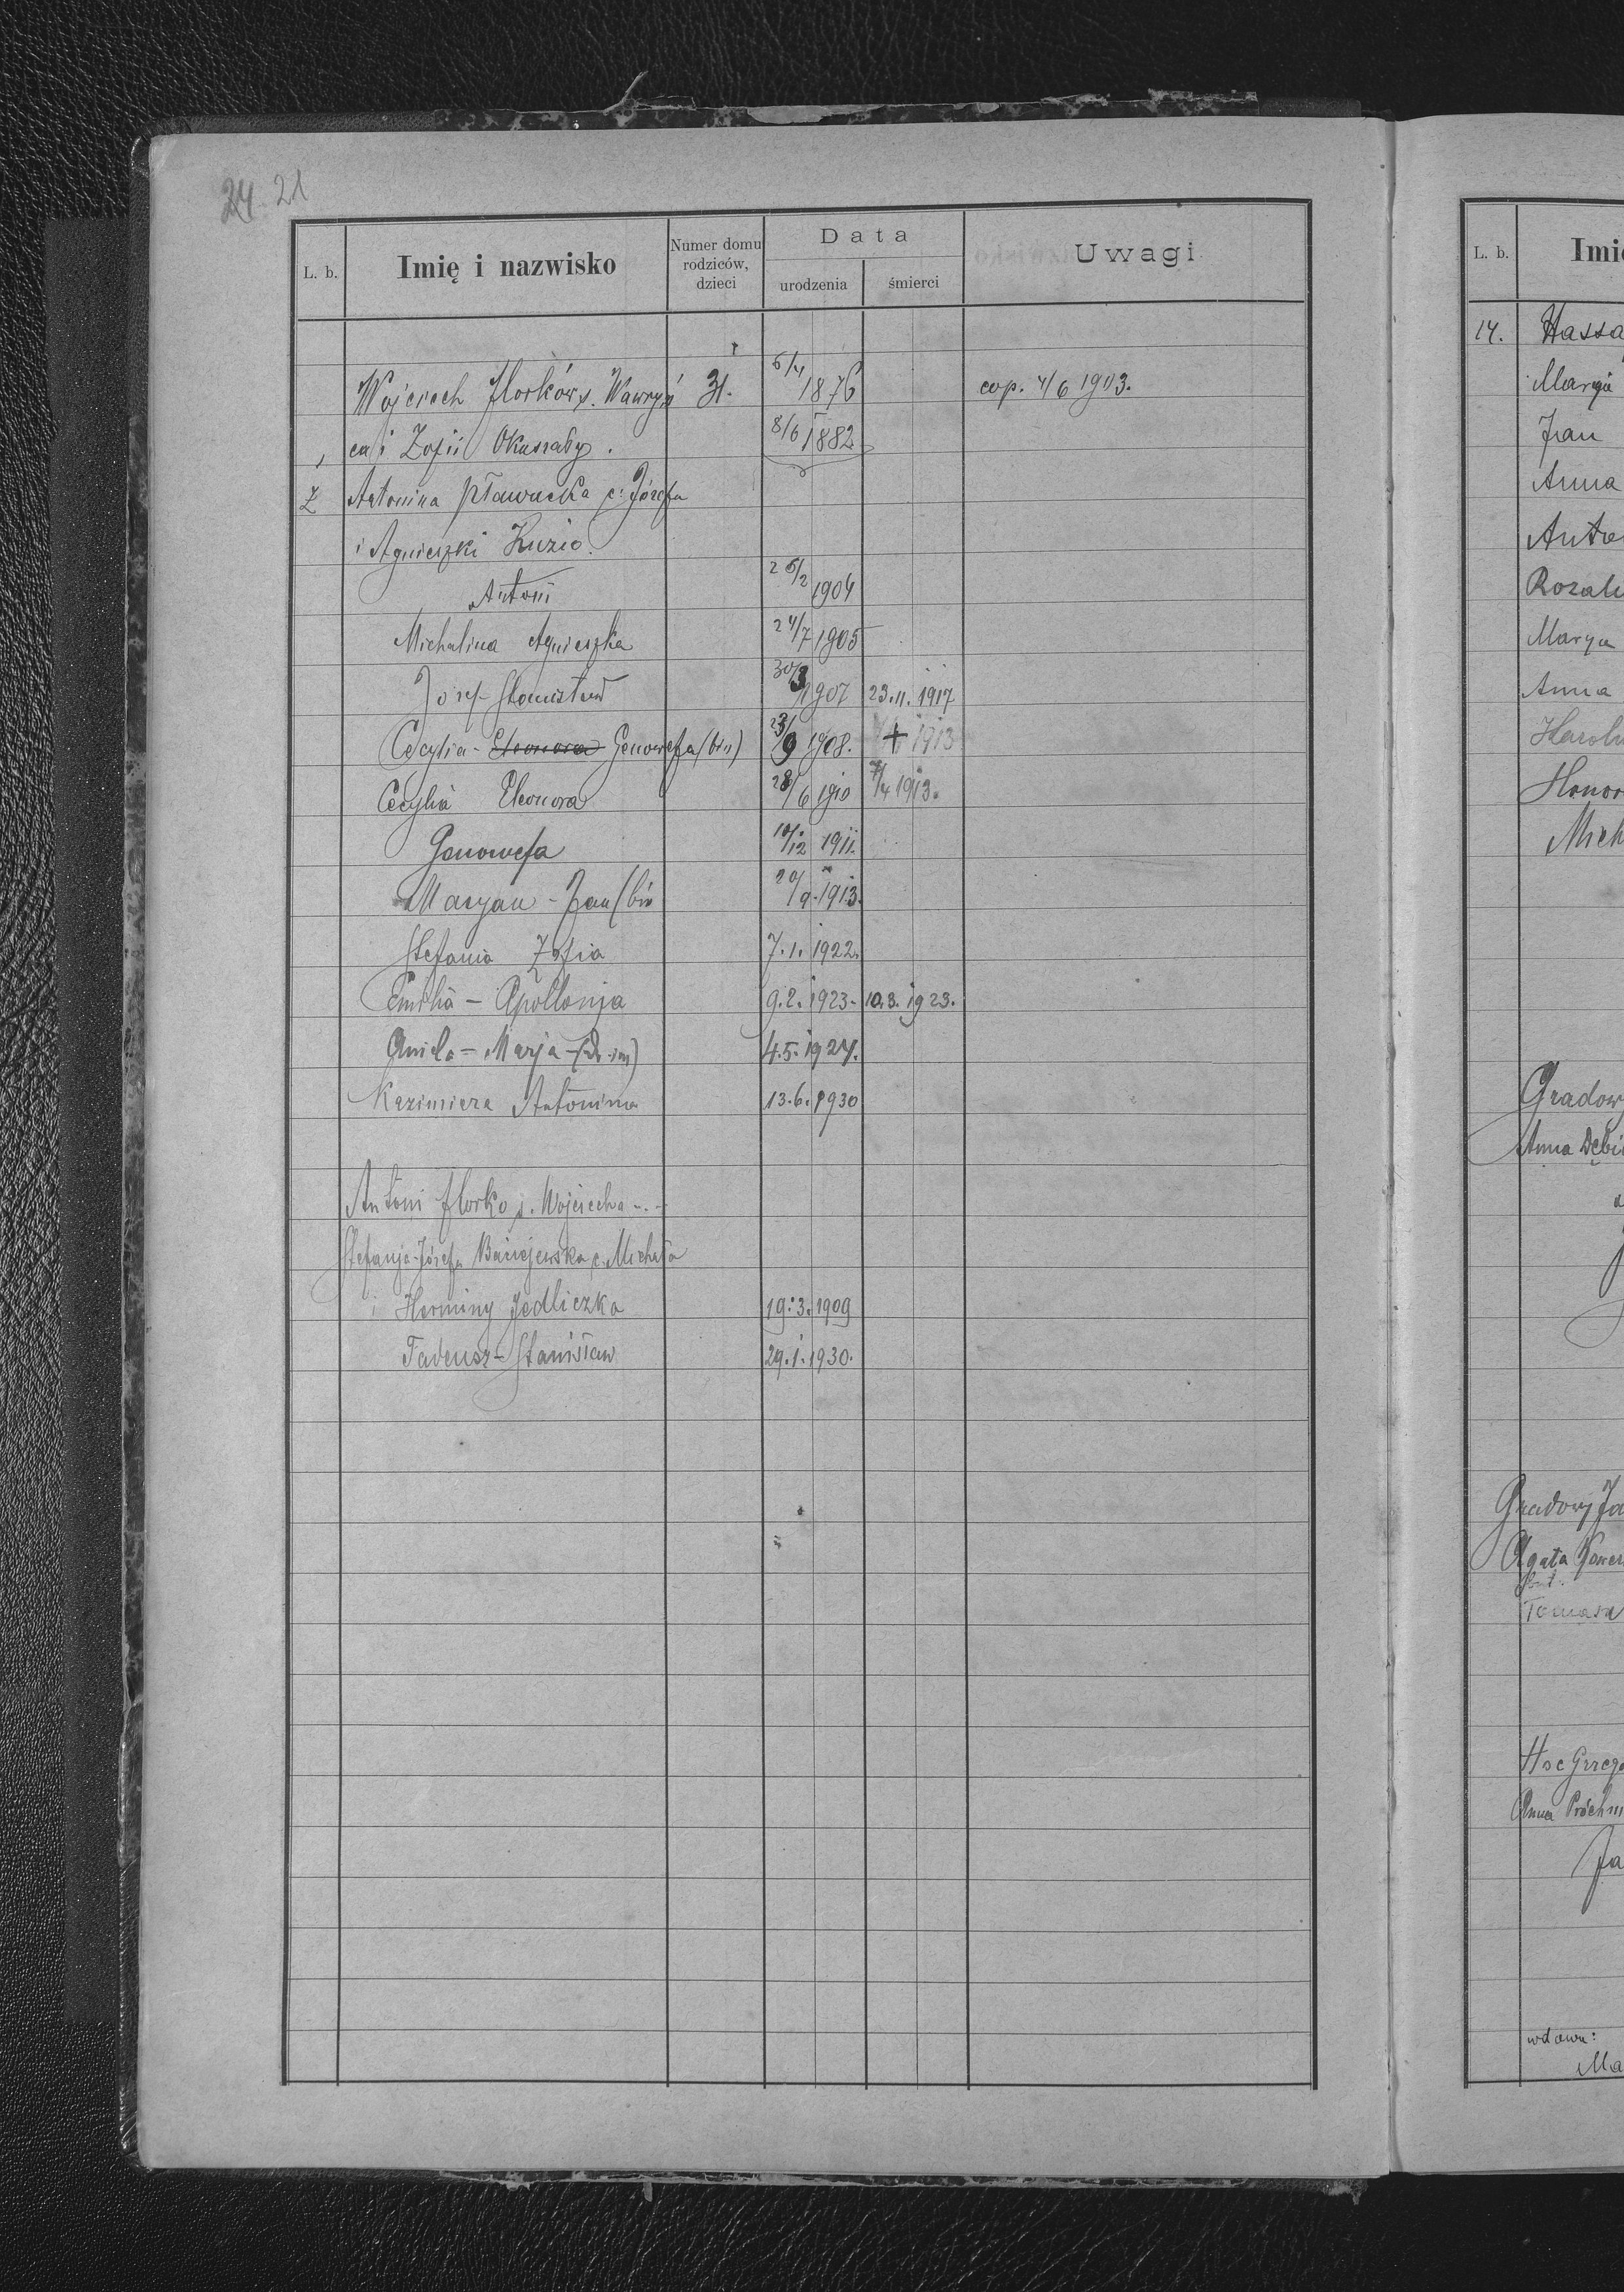 24. 21
L. b. Imię i nazwisko Numer domu rodziców, dzieci Data urodzenia śmierci Uwagi
Wojciech Florków s. Wawrzyń 31. 5/4 1876 cop. 4/6 1903.
ca i Zofii 8/6 1882
Z Antonina Pławucka c. Józefa
i Agnieszki Kuzio.
Antoni 25/2 1904
Michalina Agnieszka 24/7 1905
Józef-Stanisław 30/3 1907 23.11.1917
Cecylia - Eleonora Genowefa (bis) 23/9 1908. + 1913
Cecylia Eleonora 28/6 1910 7/4 1913.
Genowefa 10/12 1911.
Maryan - Jan (bis 20/9. 1913.
Stefania Zofia 7.1. 1922.
Emilia - Apollonja 9.2. 1923. 10.3. 1923.
Aniela - Marja - 4.5. 1924.
Kazimiera Antonina 13.6. 1930
Antoni Florko s. Wojciecha -.-
Stefanja-Józefa c. Michała
i Herminy Jedliczka 19.3.1909
Tadeusz-Stanisław 29.1.1930.
L. b. Imię
14. Hassa
Marya
Jan
Anna
Anto
Rozali
Marya
Anna
Karol
Honor
Mich
Gradow
Anna Dębi
Gradowy Ja
Agata
Tomasz
Hoc Grzego
Anna Próchni
Ja
wdowa:
Ma